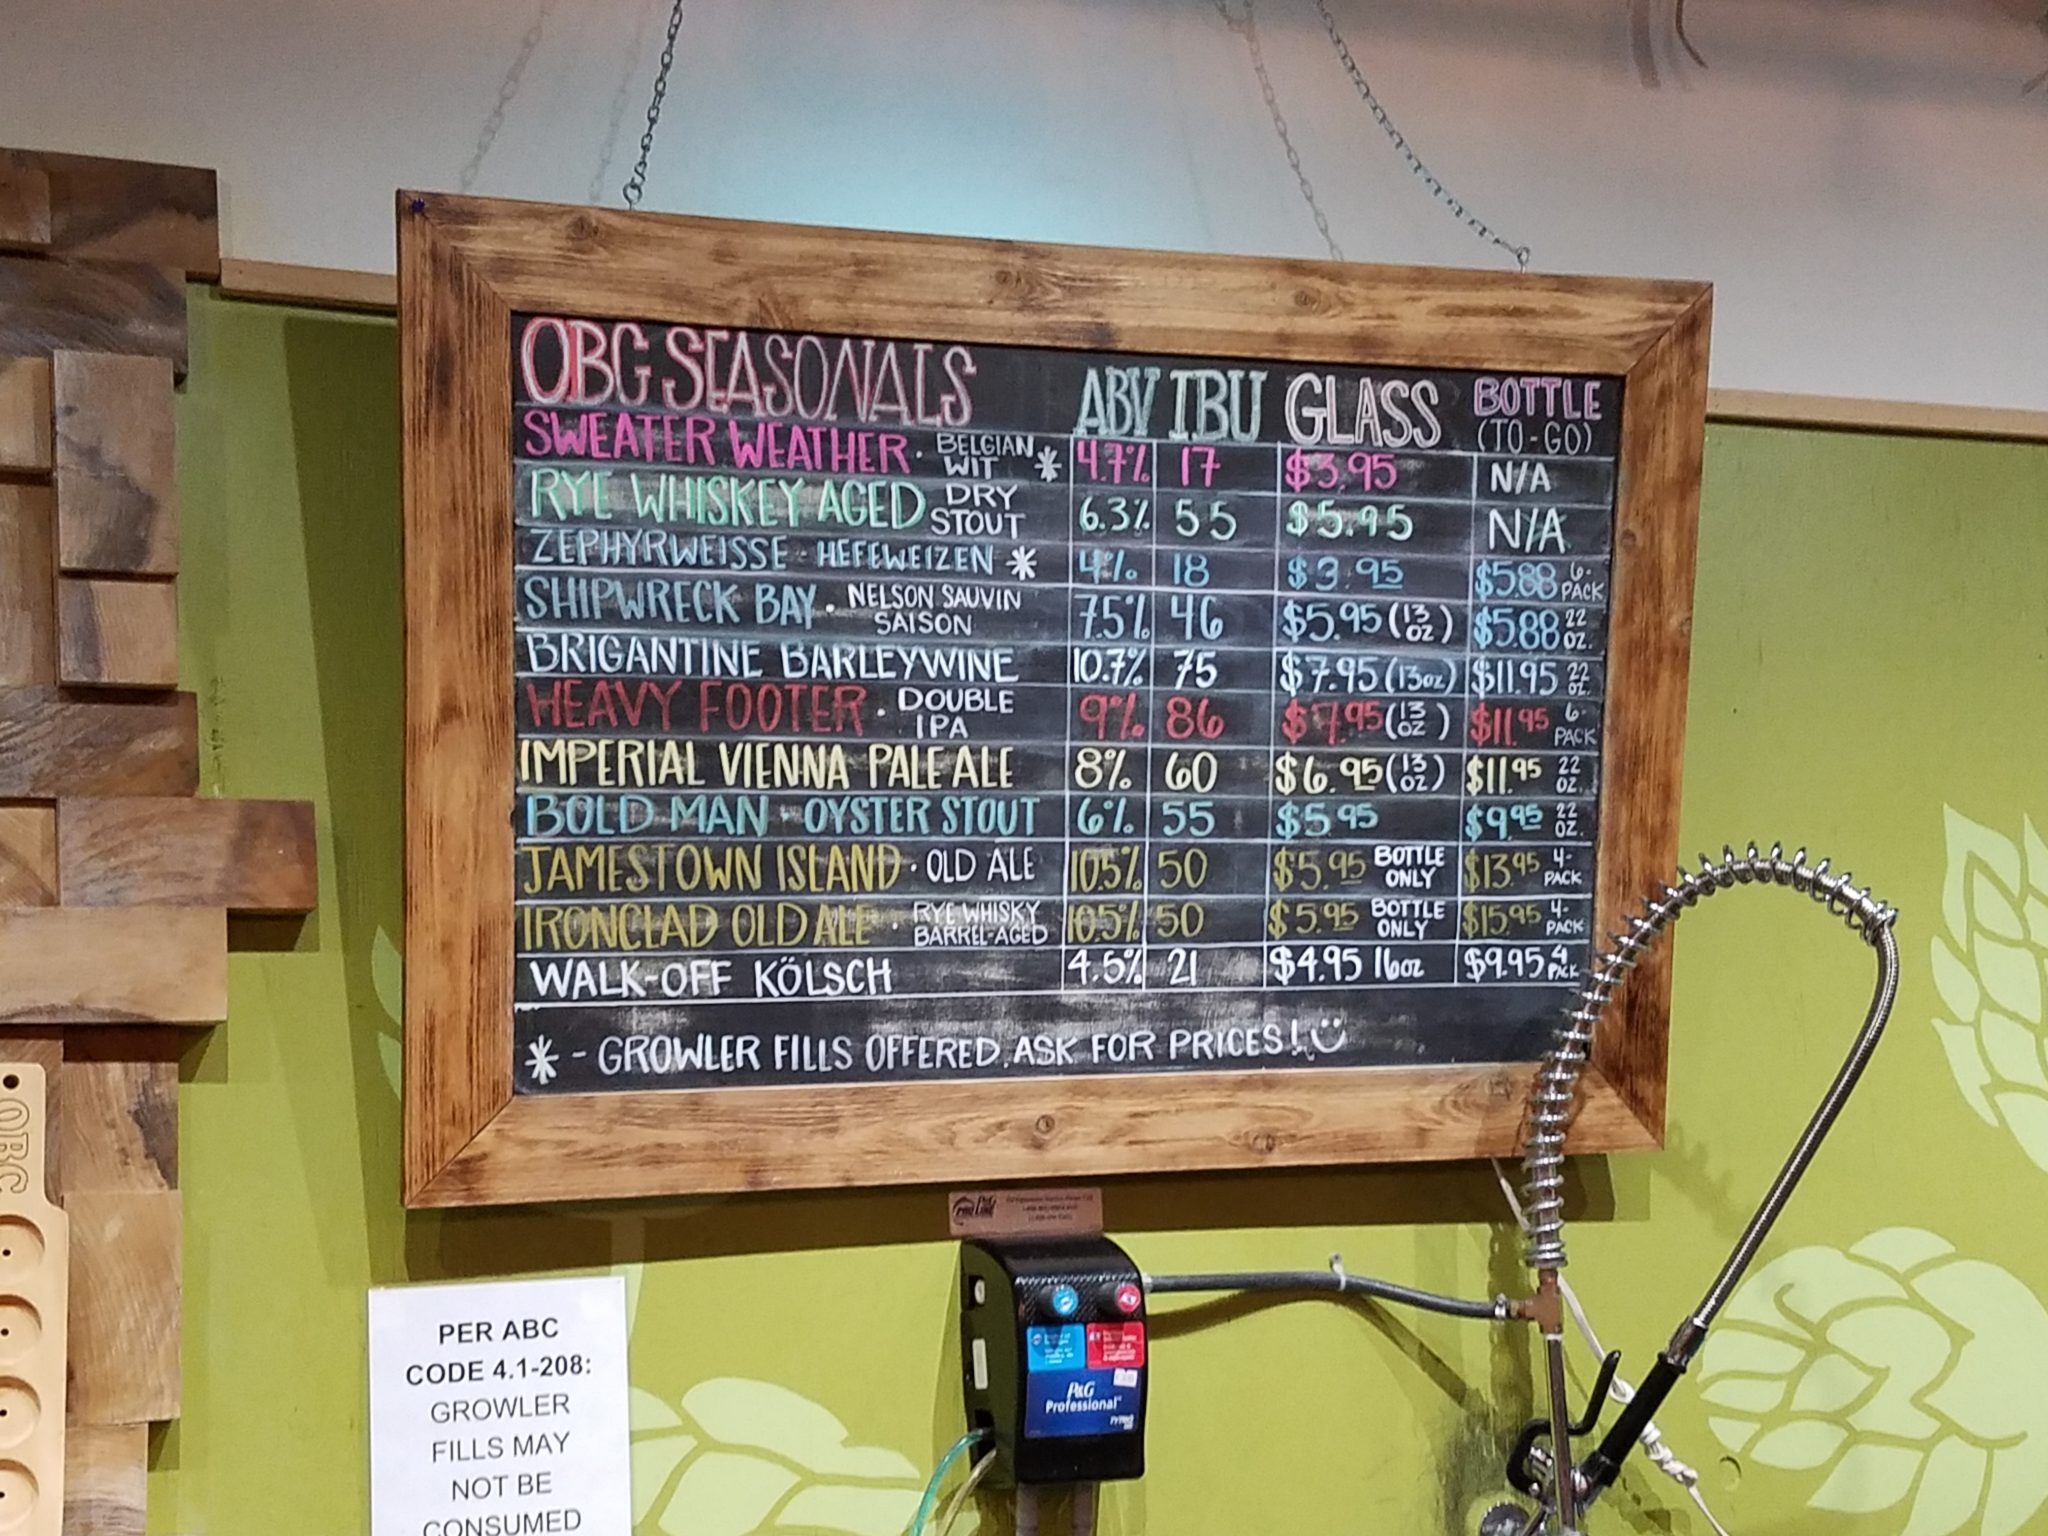 OBG SEASONALS ABV IBU GLASS BOTTLE (TO-GO)
SWEATER WEATHER · BELGIAN WIT * 4.7% 17 $3.95 N/A
RYE WHISKEY AGED DRY STOUT 6.3% 55 $5.95 N/A
ZEPHYRWEISSE · HEFEWEIZEN * 4% 18 $3.95 $5.88 6-PACK
SHIPWRECK BAY · NELSON SAUVIN SAISON 7.5% 46 $5.95 (13 OZ) $5.88 22 OZ.
BRIGANTINE BARLEYWINE 10.7% 75 $7.95 (13oz) $11.95 22 OZ.
HEAVY FOOTER · DOUBLE IPA 9% 86 $7.95 (13 OZ) $11.95 6-PACK
IMPERIAL VIENNA PALE ALE 8% 60 $6.95 (13 OZ) $11.95 22 OZ.
BOLD MAN · OYSTER STOUT 6% 55 $5.95 $9.95 22 OZ.
JAMESTOWN ISLAND · OLD ALE 10.5% 50 $5.95 BOTTLE ONLY $13.95 4-PACK
IRONCLAD OLD ALE · RYE WHISKY BARREL-AGED 10.5% 50 $5.95 BOTTLE ONLY $15.95 4-PACK
WALK-OFF KÖLSCH 4.5% 21 $4.95 16oz $9.95 4 PACK
* - GROWLER FILLS OFFERED. ASK FOR PRICES!
OBC
P&G
Professional
PER ABC
CODE 4.1-208:
GROWLER
FILLS MAY
NOT BE
CONSUMED